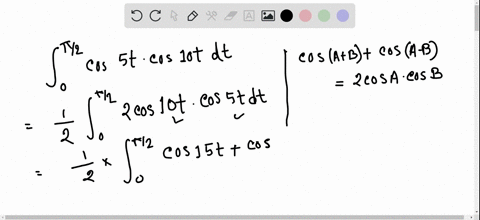 ∫₀^{π/2} cos 5t · cos 10t dt
= 1/2 ∫₀^{π/2} 2cos10t · cos5t dt
= 1/2 × ∫₀^{π/2} cos15t + cos
cos(A+B) + cos(A-B)
= 2cosA·cosB